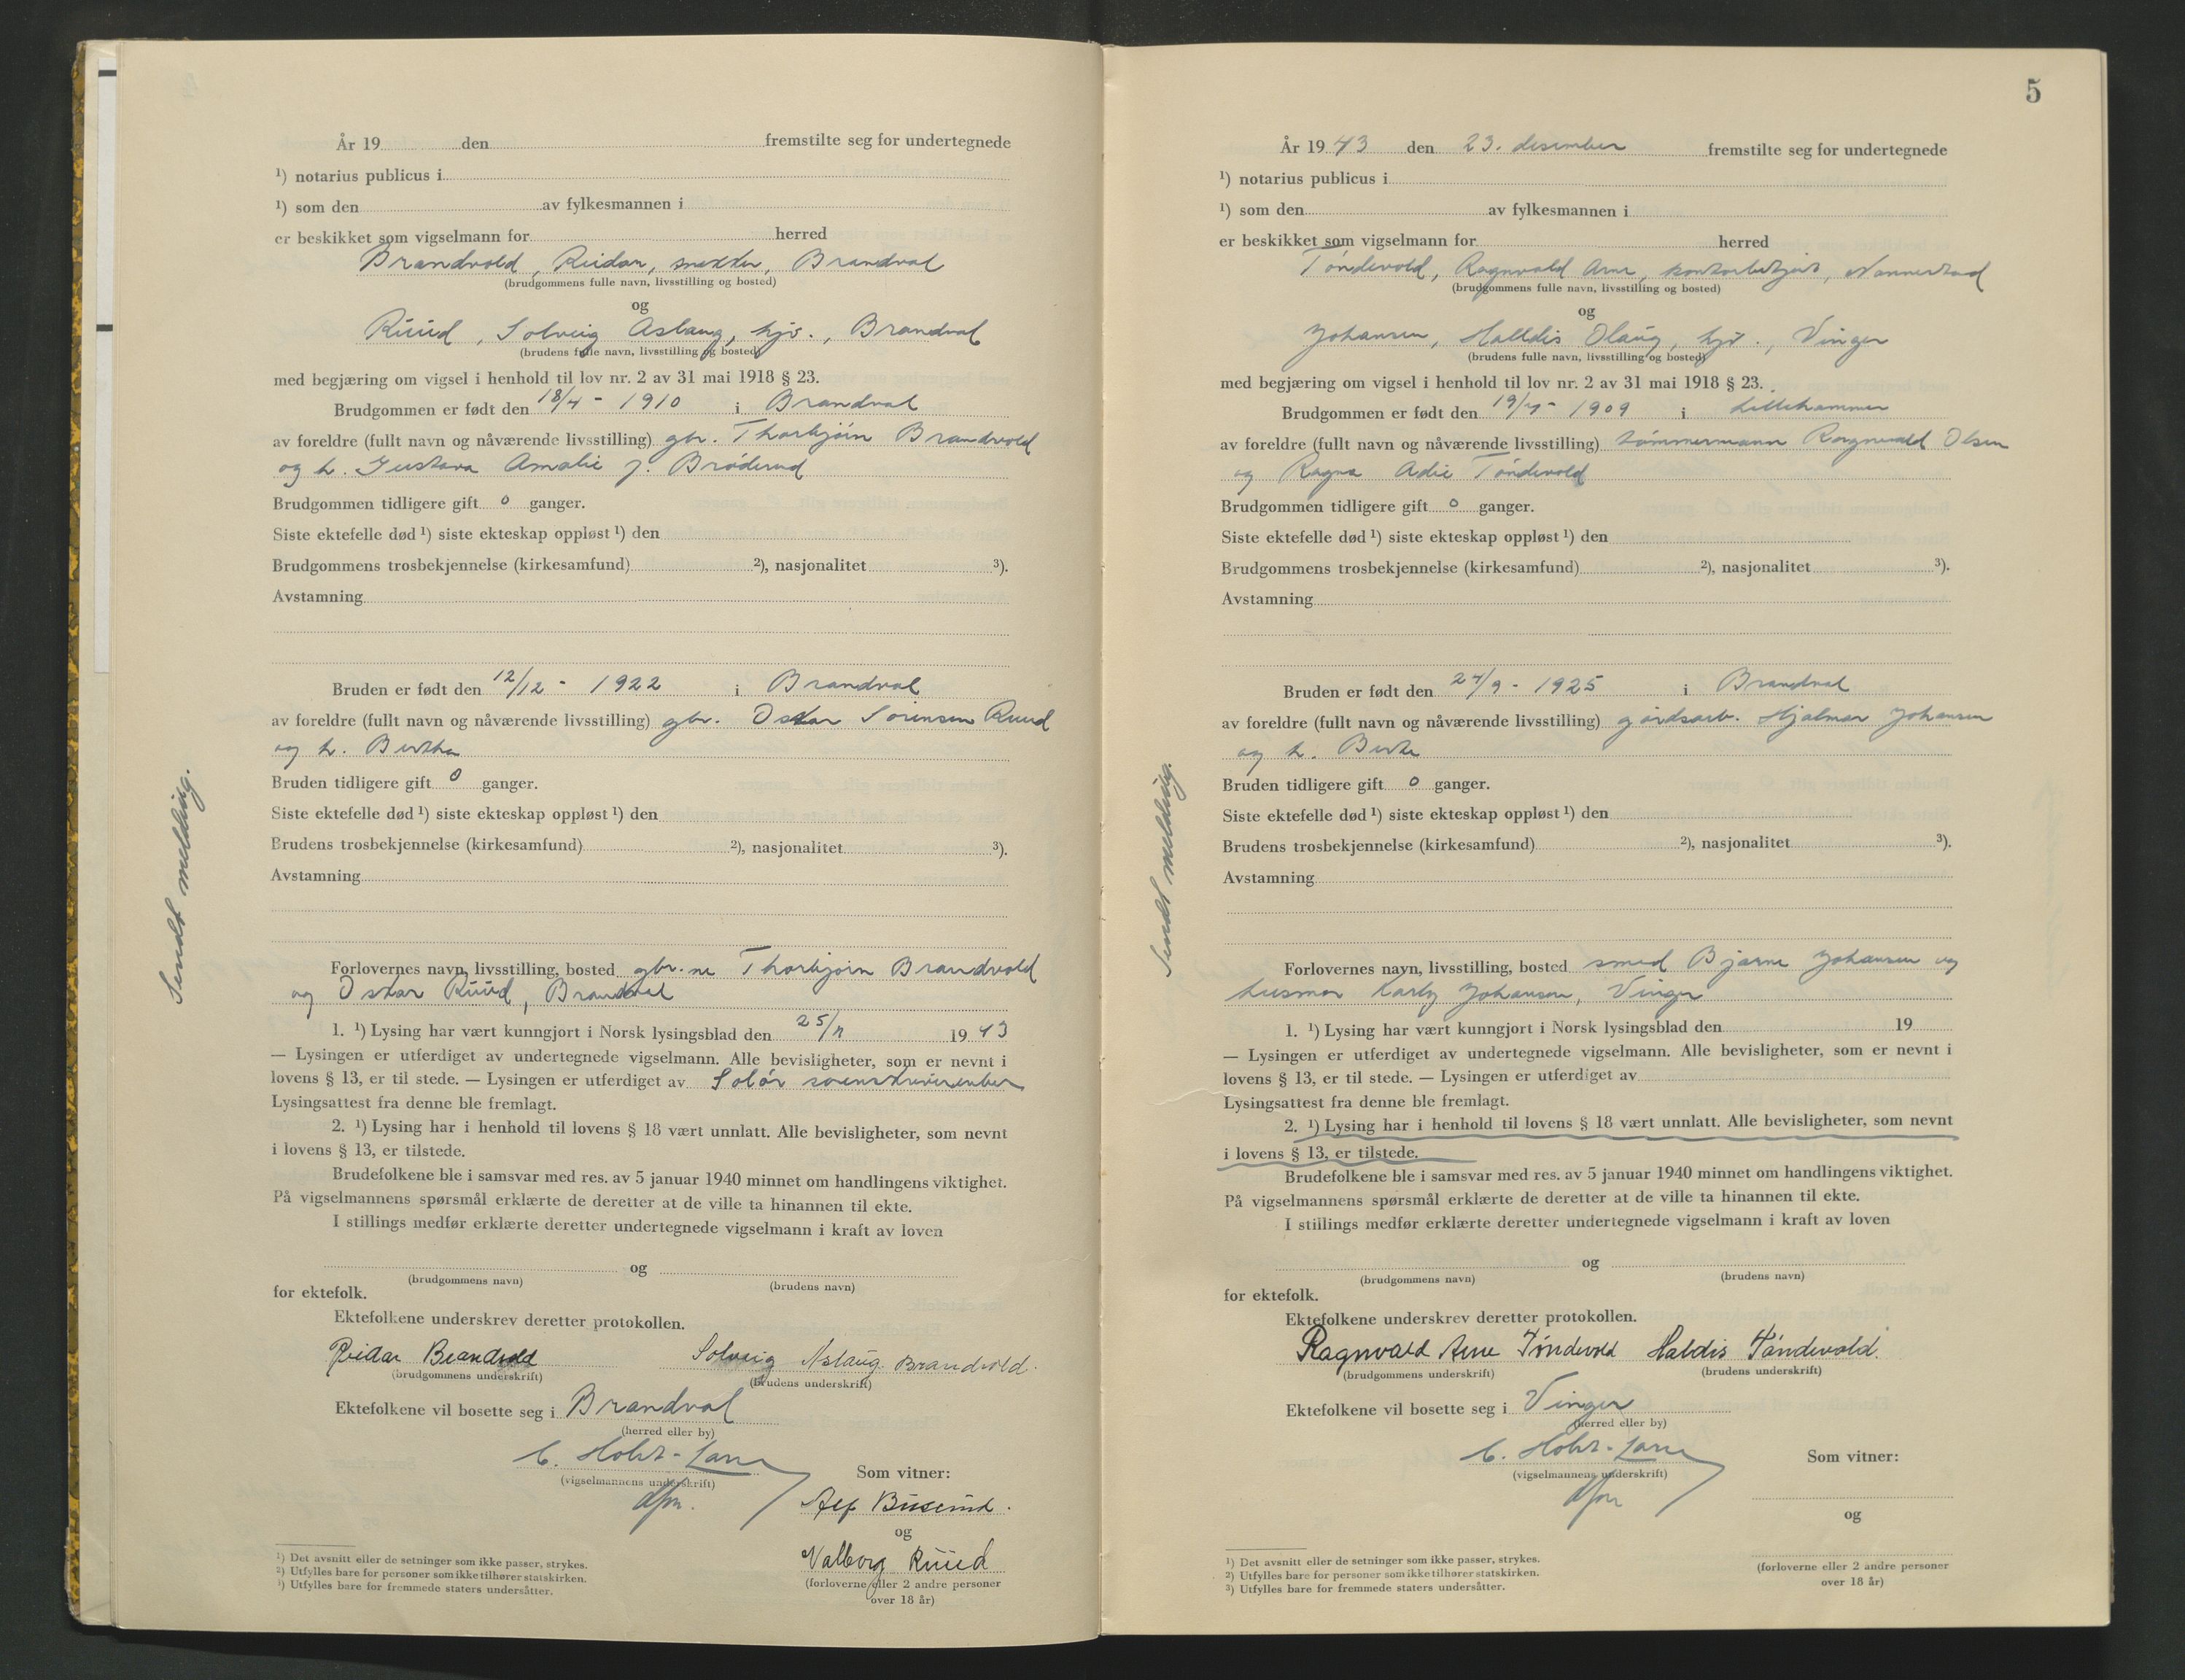 År 19 den fremstilte seg for undertegnede
¹) notarius publicus i
¹) som den av fylkesmannen i
er beskikket som vigselmann for herred
Brandvold, Reidar, snekker, Brandval
(brudgommens fulle navn, livsstilling og bosted)
og
Ruud, Solveig Aslaug, hjv., Brandval
(brudens fulle navn, livsstilling og bosted)
med begjæring om vigsel i henhold til lov nr. 2 av 31 mai 1918 § 23.
Brudgommen er født den 18/4 - 1910 i Brandval
av foreldre (fullt navn og nåværende livsstilling) gbr. Thorbjörn Brandvold
og h. Gustava Amalie f. Bröderud
Brudgommen tidligere gift 0 ganger.
Siste ektefelle død ¹) siste ekteskap oppløst ¹) den
Brudgommens trosbekjennelse (kirkesamfund) ²), nasjonalitet ³).
Avstamning
Bruden er født den 12/12 - 1922 i Brandval
av foreldre (fullt navn og nåværende livsstilling) gbr. Oskar Sörensen Ruud
og h. Bertha
Bruden tidligere gift 0 ganger.
Siste ektefelle død ¹) siste ekteskap oppløst ¹) den
Brudens trosbekjennelse (kirkesamfund) ²), nasjonalitet ³).
Avstamning
Sendt melding.
Forlovernes navn, livsstilling, bosted gbr.ne Thorbjörn Brandvold
og Oskar Ruud, Brandval
1. ¹) Lysing har vært kunngjort i Norsk lysingsblad den 25/ 1943
— Lysingen er utferdiget av undertegnede vigselmann. Alle bevisligheter, som er nevnt i
lovens § 13, er til stede. — Lysingen er utferdiget av Solör sorenskriverembet
Lysingsattest fra denne ble fremlagt.
2. ¹) Lysing har i henhold til lovens § 18 vært unnlatt. Alle bevisligheter, som nevnt
i lovens § 13, er tilstede.
Brudefolkene ble i samsvar med res. av 5 januar 1940 minnet om handlingens viktighet.
På vigselmannens spørsmål erklærte de deretter at de ville ta hinannen til ekte.
I stillings medfør erklærte deretter undertegnede vigselmann i kraft av loven
og
(brudgommens navn) (brudens navn)
for ektefolk.
Ektefolkene underskrev deretter protokollen.
Reidar Brandvold Solveig Aslaug Brandvold.
(brudgommens underskrift) (brudens underskrift)
Ektefolkene vil bosette seg i Brandval
(herred eller by)
C. Holst-
(vigselmannens underskrift)
Som vitner:
Alf Buserud.
og
Valborg Ruud
(forloverne eller 2 andre personer
over 18 år)
¹) Det avsnitt eller de setninger som ikke passer, strykes.
²) Utfylles bare for personer som ikke tilhører statskirken.
³) Utfylles bare for fremmede staters undersåtter.
5
År 1943 den 23. desember fremstilte seg for undertegnede
¹) notarius publicus i
¹) som den av fylkesmannen i
er beskikket som vigselmann for herred
Töndevold, Ragnvald Arne, kontorbetjent, Nannestad
(brudgommens fulle navn, livsstilling og bosted)
og
Johansen, Halldis Olaug, hjv., Vinger
(brudens fulle navn, livsstilling og bosted)
med begjæring om vigsel i henhold til lov nr. 2 av 31 mai 1918 § 23.
Brudgommen er født den 19/ - 1909 i Lillehammer
av foreldre (fullt navn og nåværende livsstilling) tömmermann Ragnvald Olsen
og Ragna Töndevold
Brudgommen tidligere gift 0 ganger.
Siste ektefelle død ¹) siste ekteskap oppløst ¹) den
Brudgommens trosbekjennelse (kirkesamfund) ²), nasjonalitet ³).
Avstamning
Bruden er født den /9 - 1925 i Brandval
av foreldre (fullt navn og nåværende livsstilling) gårdsarb. Hjalmar Johansen
og h. Berte
Bruden tidligere gift 0 ganger.
Siste ektefelle død ¹) siste ekteskap oppløst ¹) den
Brudens trosbekjennelse (kirkesamfund) ²), nasjonalitet ³).
Avstamning
Sendt melding.
Forlovernes navn, livsstilling, bosted smed Bjarne Johansen og
husmor Karly Johansen, Vinger
1. ¹) Lysing har vært kunngjort i Norsk lysingsblad den 19
— Lysingen er utferdiget av undertegnede vigselmann. Alle bevisligheter, som er nevnt i
lovens § 13, er til stede. — Lysingen er utferdiget av
Lysingsattest fra denne ble fremlagt.
2. ¹) Lysing har i henhold til lovens § 18 vært unnlatt. Alle bevisligheter, som nevnt
i lovens § 13, er tilstede.
Brudefolkene ble i samsvar med res. av 5 januar 1940 minnet om handlingens viktighet.
På vigselmannens spørsmål erklærte de deretter at de ville ta hinannen til ekte.
I stillings medfør erklærte deretter undertegnede vigselmann i kraft av loven
og
(brudgommens navn) (brudens navn)
for ektefolk.
Ektefolkene underskrev deretter protokollen.
Ragnvald Arne Töndevold Haldis Töndevold.
(brudgommens underskrift) (brudens underskrift)
Ektefolkene vil bosette seg i Vinger
(herred eller by)
C. Holst-
(vigselmannens underskrift)
Som vitner:
og
(forloverne eller 2 andre personer
over 18 år)
¹) Det avsnitt eller de setninger som ikke passer, strykes.
²) Utfylles bare for personer som ikke tilhører statskirken.
³) Utfylles bare for fremmede staters undersåtter.